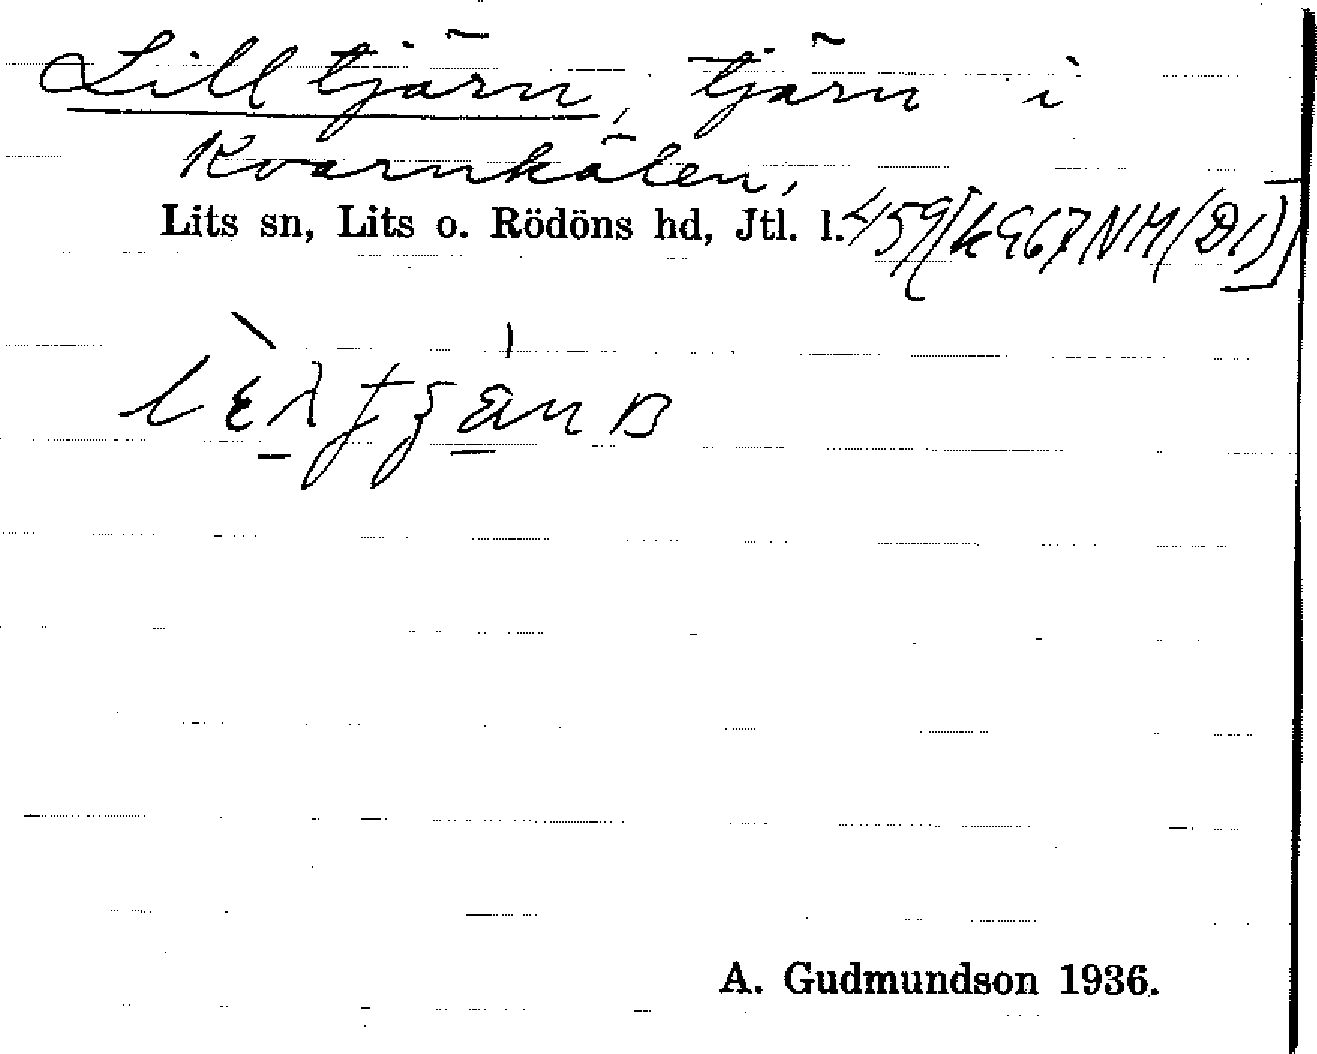 Lilltjärn, tjärn i
Kvarnkälen,
Lits sn, Lits o. Rödöns hd, Jtl. l. 459
A. Gudmundson 1936.